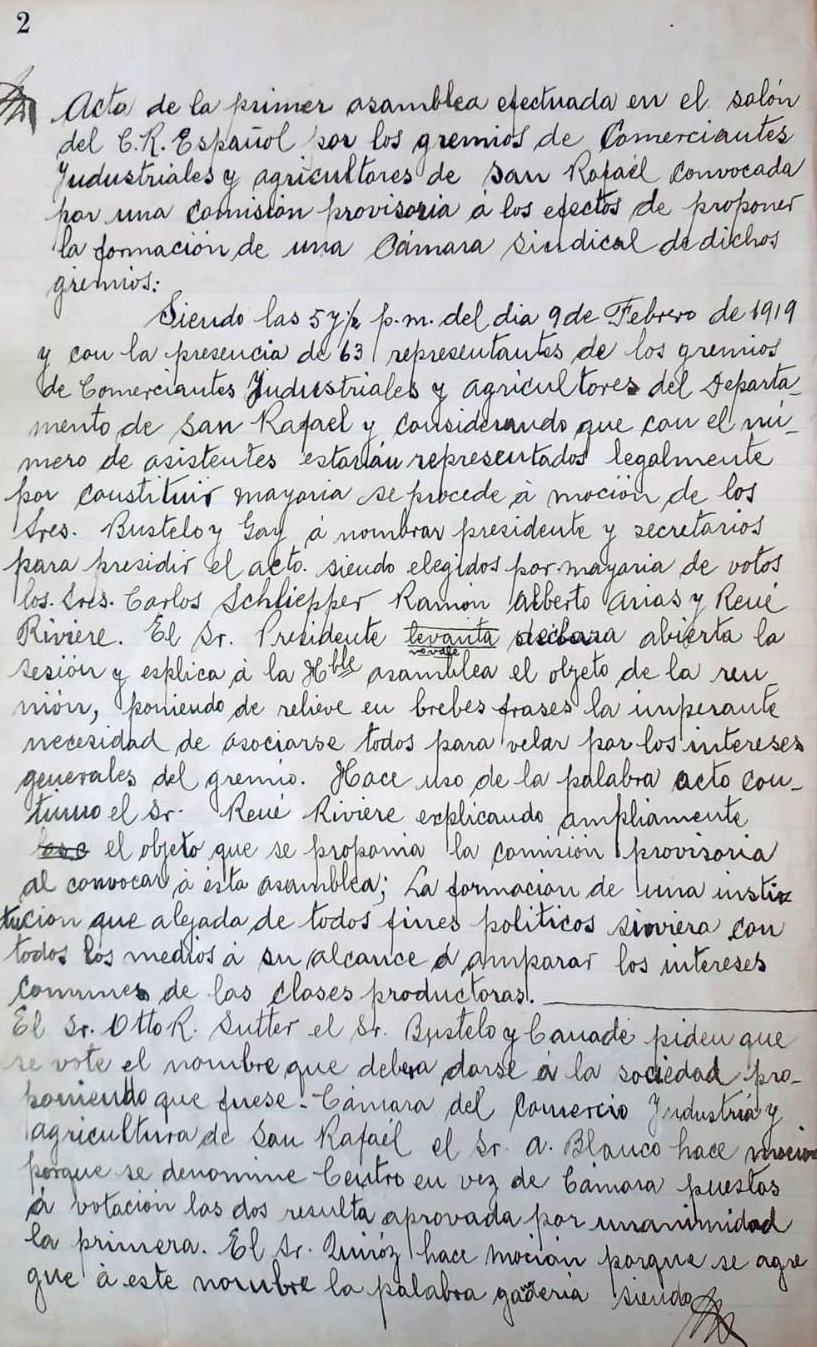 2
Acta de la primer asamblea efectuada en el salón
del C.R. Español por los gremios de Comerciantes
Industriales y agricultores de San Rafaél convocada
por una comisión provisoria á los efectos de proponer
la formación de una Cámara Sindical de dichos
gremios:
Siendo las 5 y ½ p.m. del dia 9 de Febrero de 1919
y con la presencia de 63 representantes de los gremios
de Comerciantes Industriales y agricultores del Departa-
mento de San Rafael y considerando que con el nú-
mero de asistentes estarián representados legalmente
por constituir mayoria se procede á moción de los
Sres. Bustelo y Gay á nombrar presidente y secretarios
para presidir el acto. siendo elegidos por mayaria de votos
los. Sres. Carlos Schliepper Ramón Alberto Arias y René
Riviere. El Sr. Presidente levanta declara abierta la
no vale
sesión y esplica á la Hble asamblea el objeto de la reu_
nión, poniendo de relieve en brebes frases la imperante
necesidad de asociarse todos para velar por los intereses
generales del gremio. Hace uso de la palabra acto con_
tinuo el Sr. René Riviere explicando ampliamente
el objeto que se proponia la comisión provisoria
al convocar á ésta asamblea; La formación de una insti
tución que alejada de todos fines politicos sirviera con
todos los medios á su alcance á amparar los intereses
comunes de las clases productoras.
El Sr. Otto R. Sutter el Sr. Bustelo y Canadé piden que
se vote el nombre que debera darse á la sociedad pro-
poniendo que fuese. Cámara del Comercio Industria y
agricultura de San Rafaél el Sr. A. Blanco hace mocion
porque se denomine Centro en vez de Cámara puestas
á votación las dos resulta aprovada por unanimidad
la primera. El Sr. Quiróz hace moción porque se agre
gue á este nombre la palabra gaderia siendo